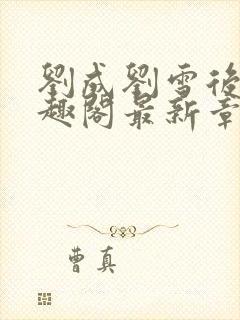 劉成劉雪後
趣閣最新章
曹真